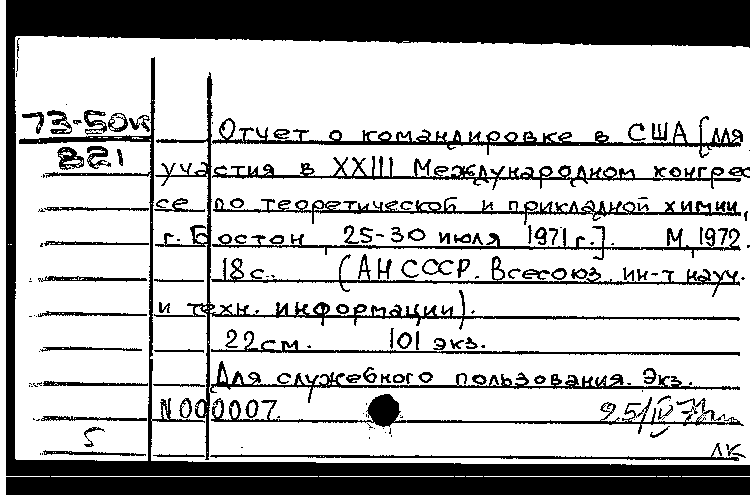 73-50к
821
Отчет о командировке в США [для
участия в XXIII Международном конгрес
се по теоретической и прикладной химии,
г. Бостон, 25-30 июля 1971 г.]. М, 1972.
18 с. (АН СССР. Всесоюз. ин-т науч.
и техн. информации).
22 см. 101 экз.
Для служебного пользования. Экз.
N 000007. 25/IV
5
ЛК